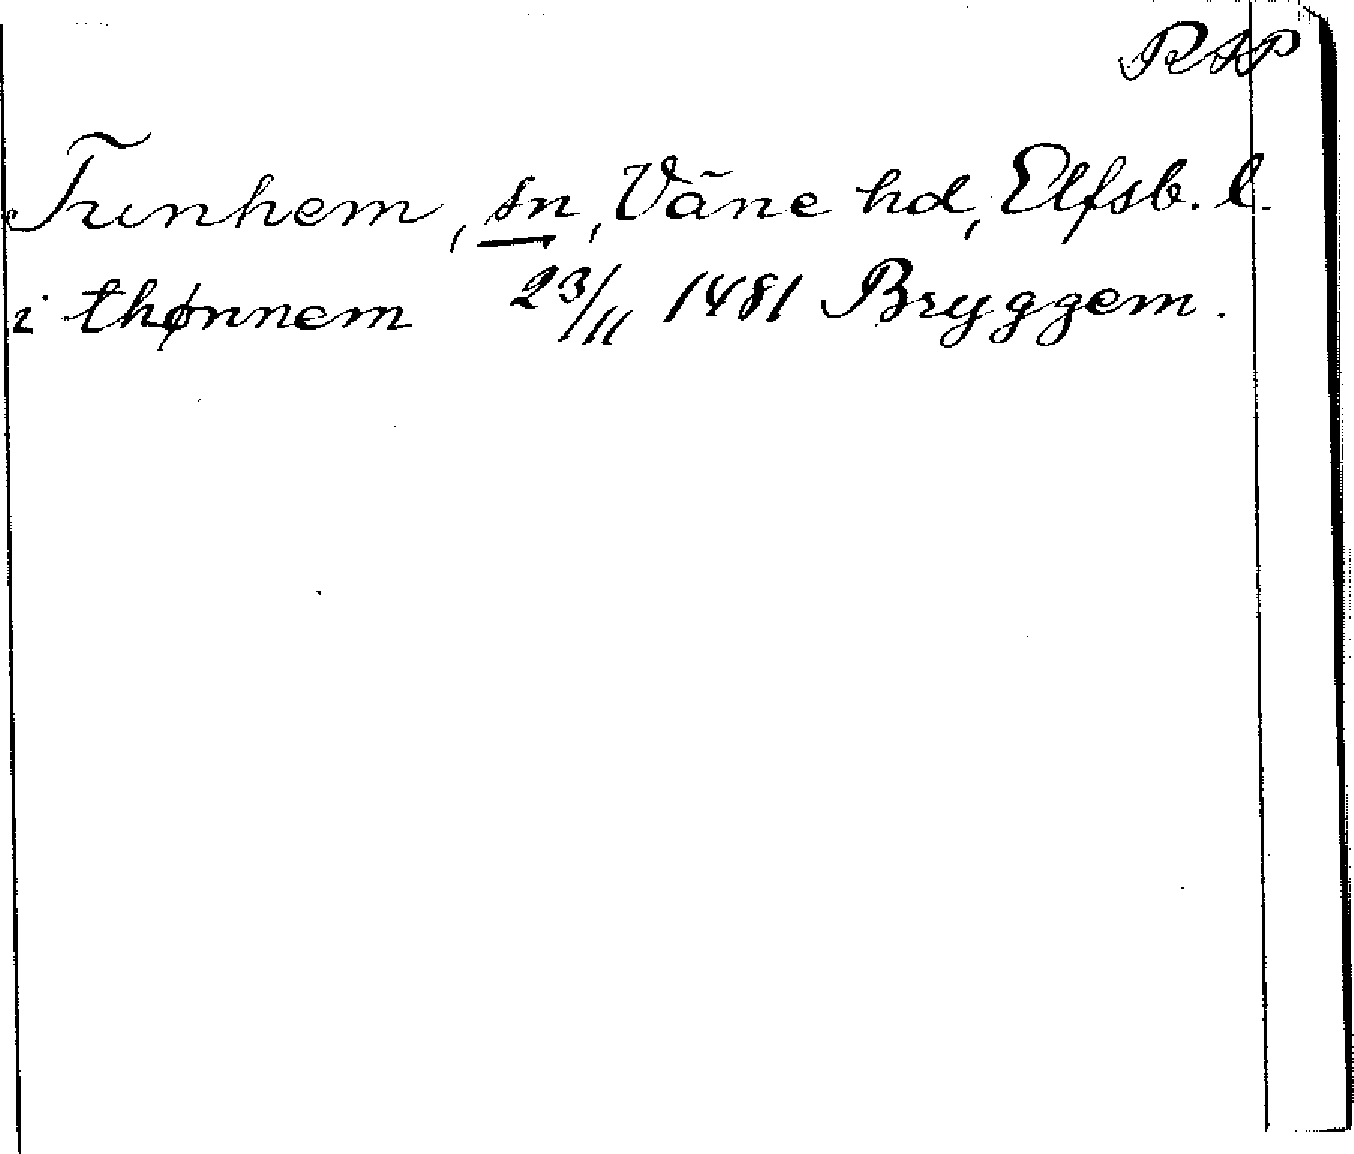 RAP
Trunhem, sn, Väne hd, Elfsb. l.
i thønnem 23/11 1481 Bryggem.